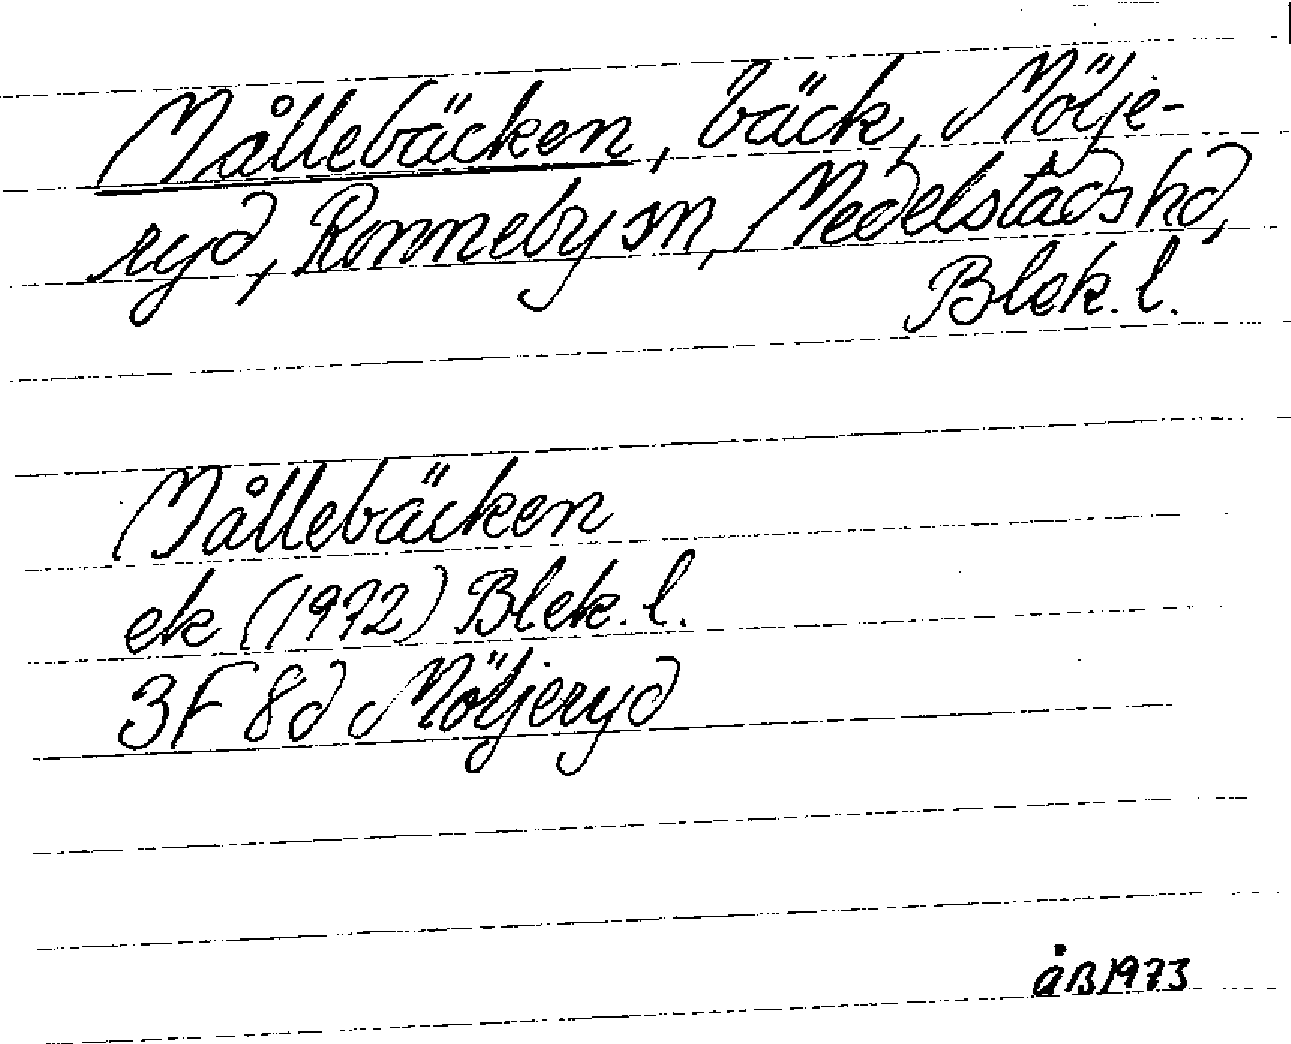 Mållebäcken, bäck, Mölje-
ryd, Ronneby sn, Medelstads hd,
Blek. l.
Mållebäcken
ek (1972) Blek. l.
3F 8d Möljeryd
åB 1973